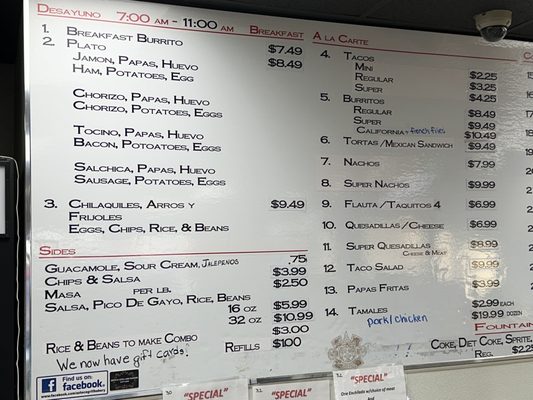 Desayuno 7:00 AM - 11:00 AM Breakfast
1. Breakfast Burrito $7.49
2. Plato $8.49
Jamon, Papas, Huevo
Ham, Potatoes, Egg
Chorizo, Papas, Huevo
Chorizo, Potatoes, Egg
Tocino, Papas, Huevo
Bacon, Potoatoes, Egg
Salchica, Papas, Huevo
Sausage, Potatoes, Eggs
3. Chilaquiles, Arros y $9.49
Frijoles
Eggs, Chips, Rice, & Beans
Sides
Guacamole, Sour Cream, Jalepeños .75
Chips & Salsa $3.99
Masa per lb. $2.50
Salsa, Pico De Gayo, Rice, Beans
16 oz $5.99
32 oz $10.99
Rice & Beans to make Combo $3.00
Refills $1.00
We now have gift cards!
Find us on
facebook
A la Carte
4. Tacos
Mini $2.25
Regular $3.25
Super $4.25
5. Burritos
Regular $8.49
Super $9.49
California + french fries $10.49
6. Tortas /Mexican Sandwich $9.49
7. Nachos $7.99
8. Super Nachos $9.99
9. Flauta /Taquitos 4 $6.99
10. Quesadillas /Cheese $6.99
11. Super Quesadillas $8.99
Cheese & Meat
12. Taco Salad $9.99
13. Papas Fritas $9.99
14. Tamales $2.99 each
pork/chicken $19.99 dozen
Fountain
Coke, Diet Coke, Sprite
Reg. $2.25
"SPECIAL"
"SPECIAL"
"SPECIAL"
One Enchilada w/choice of meat
And